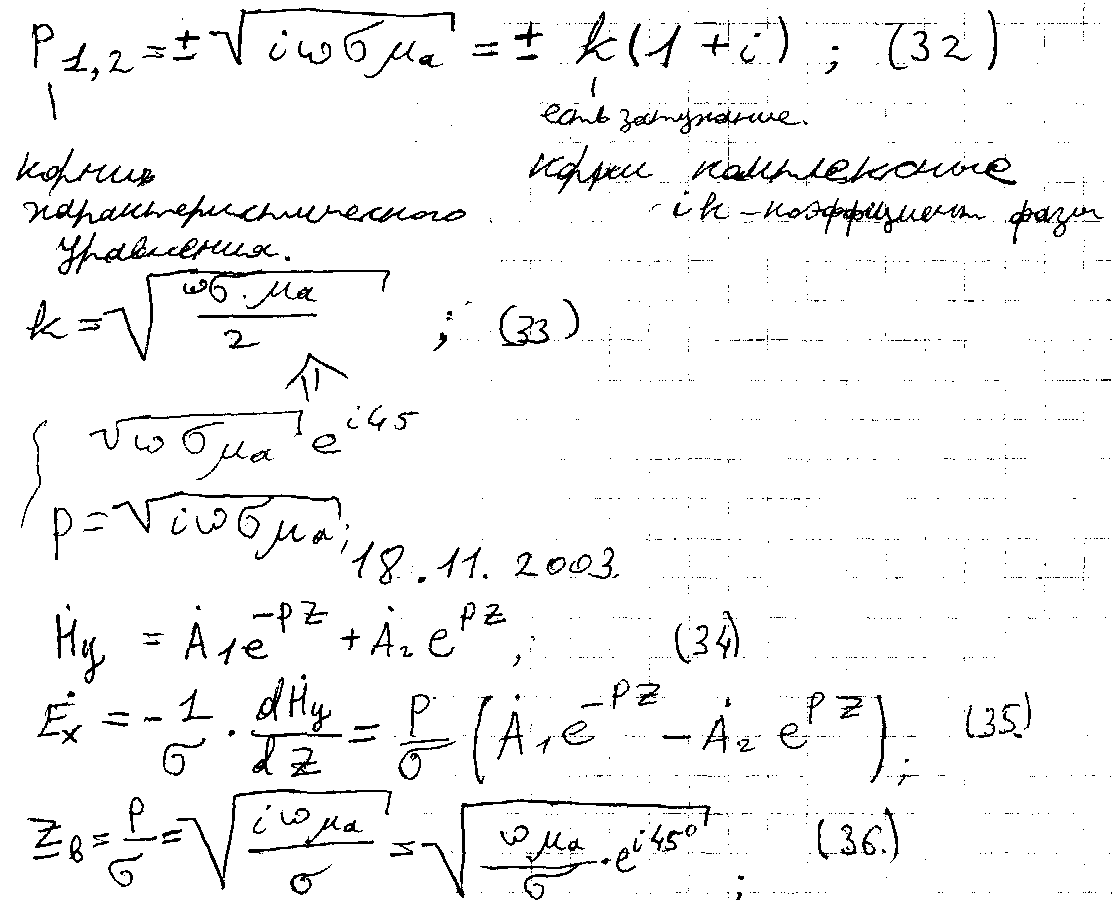 p₁,₂ = ± √(iωσμₐ) = ± k(1 + i) ; (32)
есть затухание.
корни
характеристического
уравнения.
корни комплексные
ik – коэффициент фазы
k = √(ωσ·μₐ / 2) ; (33)
⇑
√(ωσμₐ) e^{i45}
p = √(iωσμₐ) ;
18.11.2003.
Ḣy = Ȧ₁e^{-pz} + Ȧ₂e^{pz} ; (34)
Ėx = - 1/σ · dḢy/dz = p/σ (Ȧ₁e^{-pz} - Ȧ₂e^{pz}) ; (35.)
Z̲в = p/σ = √(iωμₐ / σ) = √(ωμₐ / σ · e^{i45°}) ; (36.)